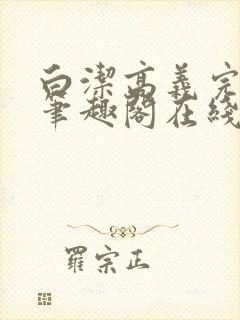 白潔高義完
筆趣閣在綫
羅宗正